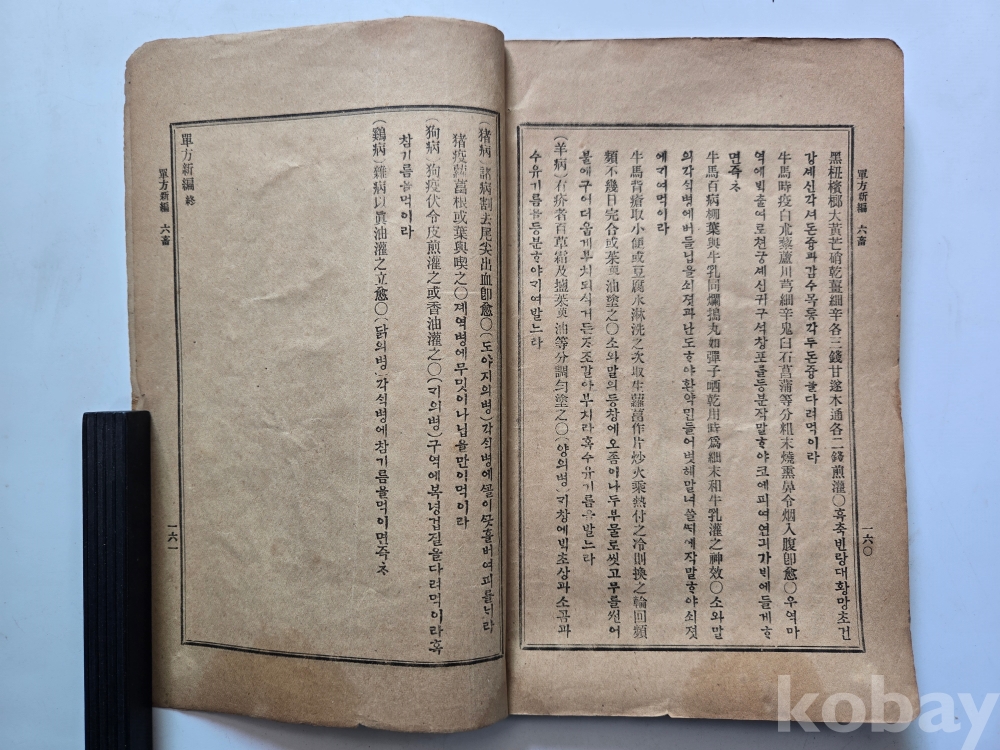 單方新編 六畜
一六〇
黑杻檳榔大黃芒硝乾薑細辛各三錢甘遂木通各二錢煎灌〇흑축빈랑대황망초건
강셰신각셔돈중과감수목통각두돈중을다려먹이라
牛馬時疫白朮藜蘆川芎細辛鬼臼石菖蒲等分粗末燒熏鼻令烟入腹卽愈〇우역마
역에빅출여로천궁셰신귀구석창포를등분작말ᄒᆞ야코에피여연긔가빅에들게ᄒᆞ
면즉ᄎᆞ
牛馬百病柳葉與牛乳同爛搗丸如彈子晒乾用時爲細末和牛乳灌之神效〇소와말
의각식병에버들닙을쇠졋과난도ᄒᆞ야환약민들어벗헤말녀쓸ᄯᅢ에작말ᄒᆞ야쇠졋
에기여먹이라
牛馬背瘡取小便或豆腐水淋洗之次取生蘿葍作片炒火乘熱付之冷則換之輪回頻
頻不幾日完合或茱萸油塗之〇소와말의등창에오좀이나두부물로씻고무를썬어
불에구어더웁게부치되식거든ᄌᆞ조갈아부치라혹수유기름을발느라
(羊病)有疥者百草霜及塩茱萸油等分調勻塗之〇(양의병)기창에빅초상과소곰과
수유기름을등분ᄒᆞ야기여발느라
(猪病)諸病割去尾尖出血卽愈〇(도야지의병)각식병에ᄭᅩᆯ이ᄭᅳᆺ흘버여피를니라
猪疫蘿葍根或葉與喫之〇졔역병에무밋이나닙을만이먹이라
(狗病)狗疫伏令皮煎灌之或香油灌之〇(기의병)구역에복녕겁질을다려먹이라혹
참기름을먹이라
(鷄病)雜病以眞油灌之立愈〇(닭의병)각식병에참기름을먹이면즉ᄎᆞ
單方新編 終
單方新編 六畜
一六一
kobay